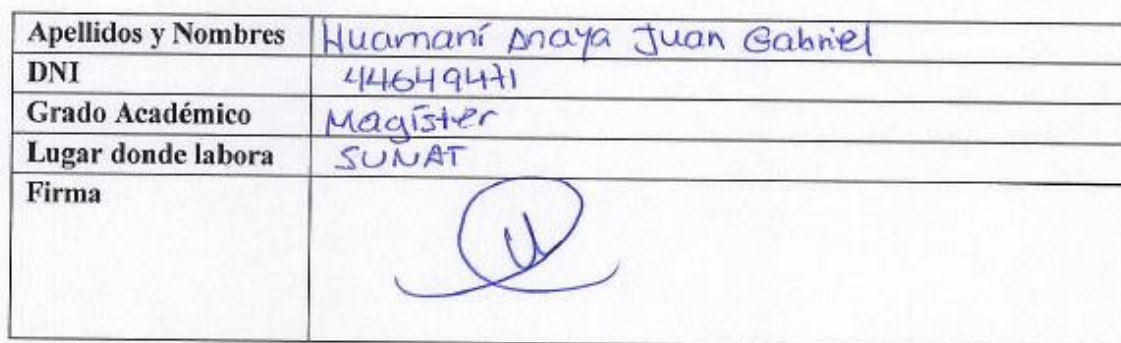 Apellidos y Nombres Huamaní Anaya Juan Gabriel
DNI 44649471
Grado Académico Magíster
Lugar donde labora SUNAT
Firma